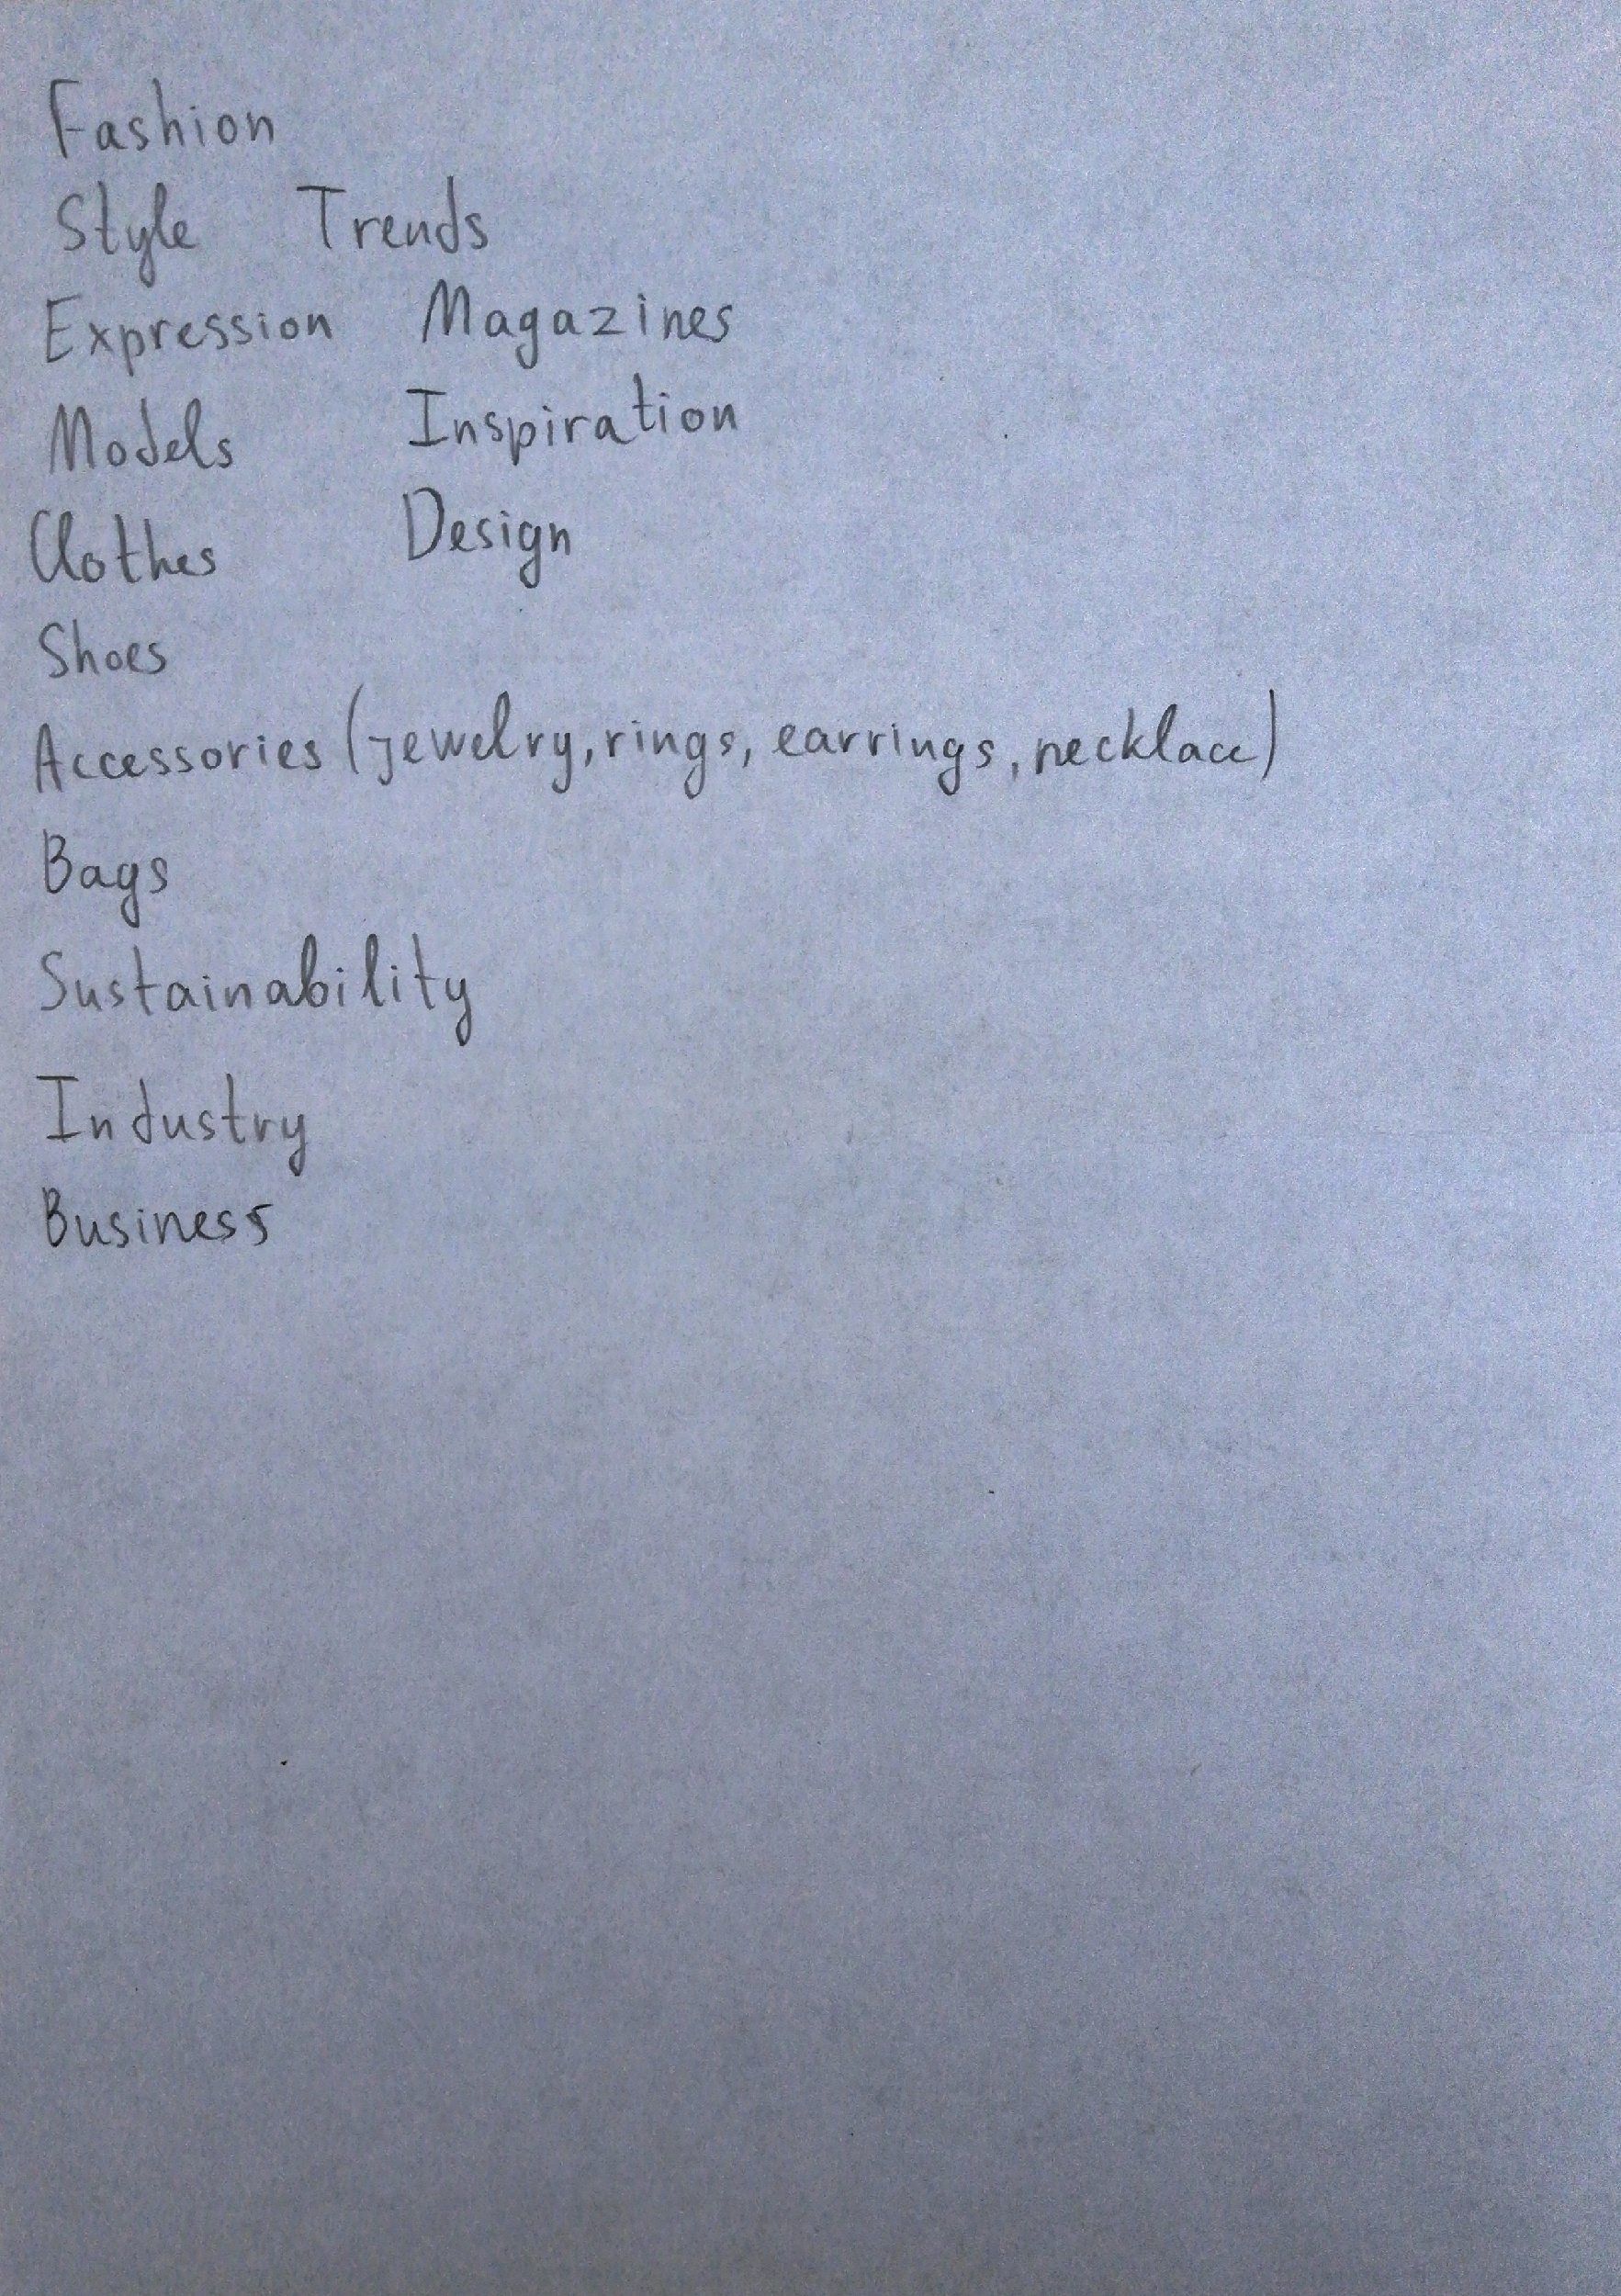 Fashion
Style Trends
Expression Magazines
Models Inspiration
Clothes Design
Shoes
Accessories (jewelry, rings, earrings, necklace)
Bags
Sustainability
Industry
Business